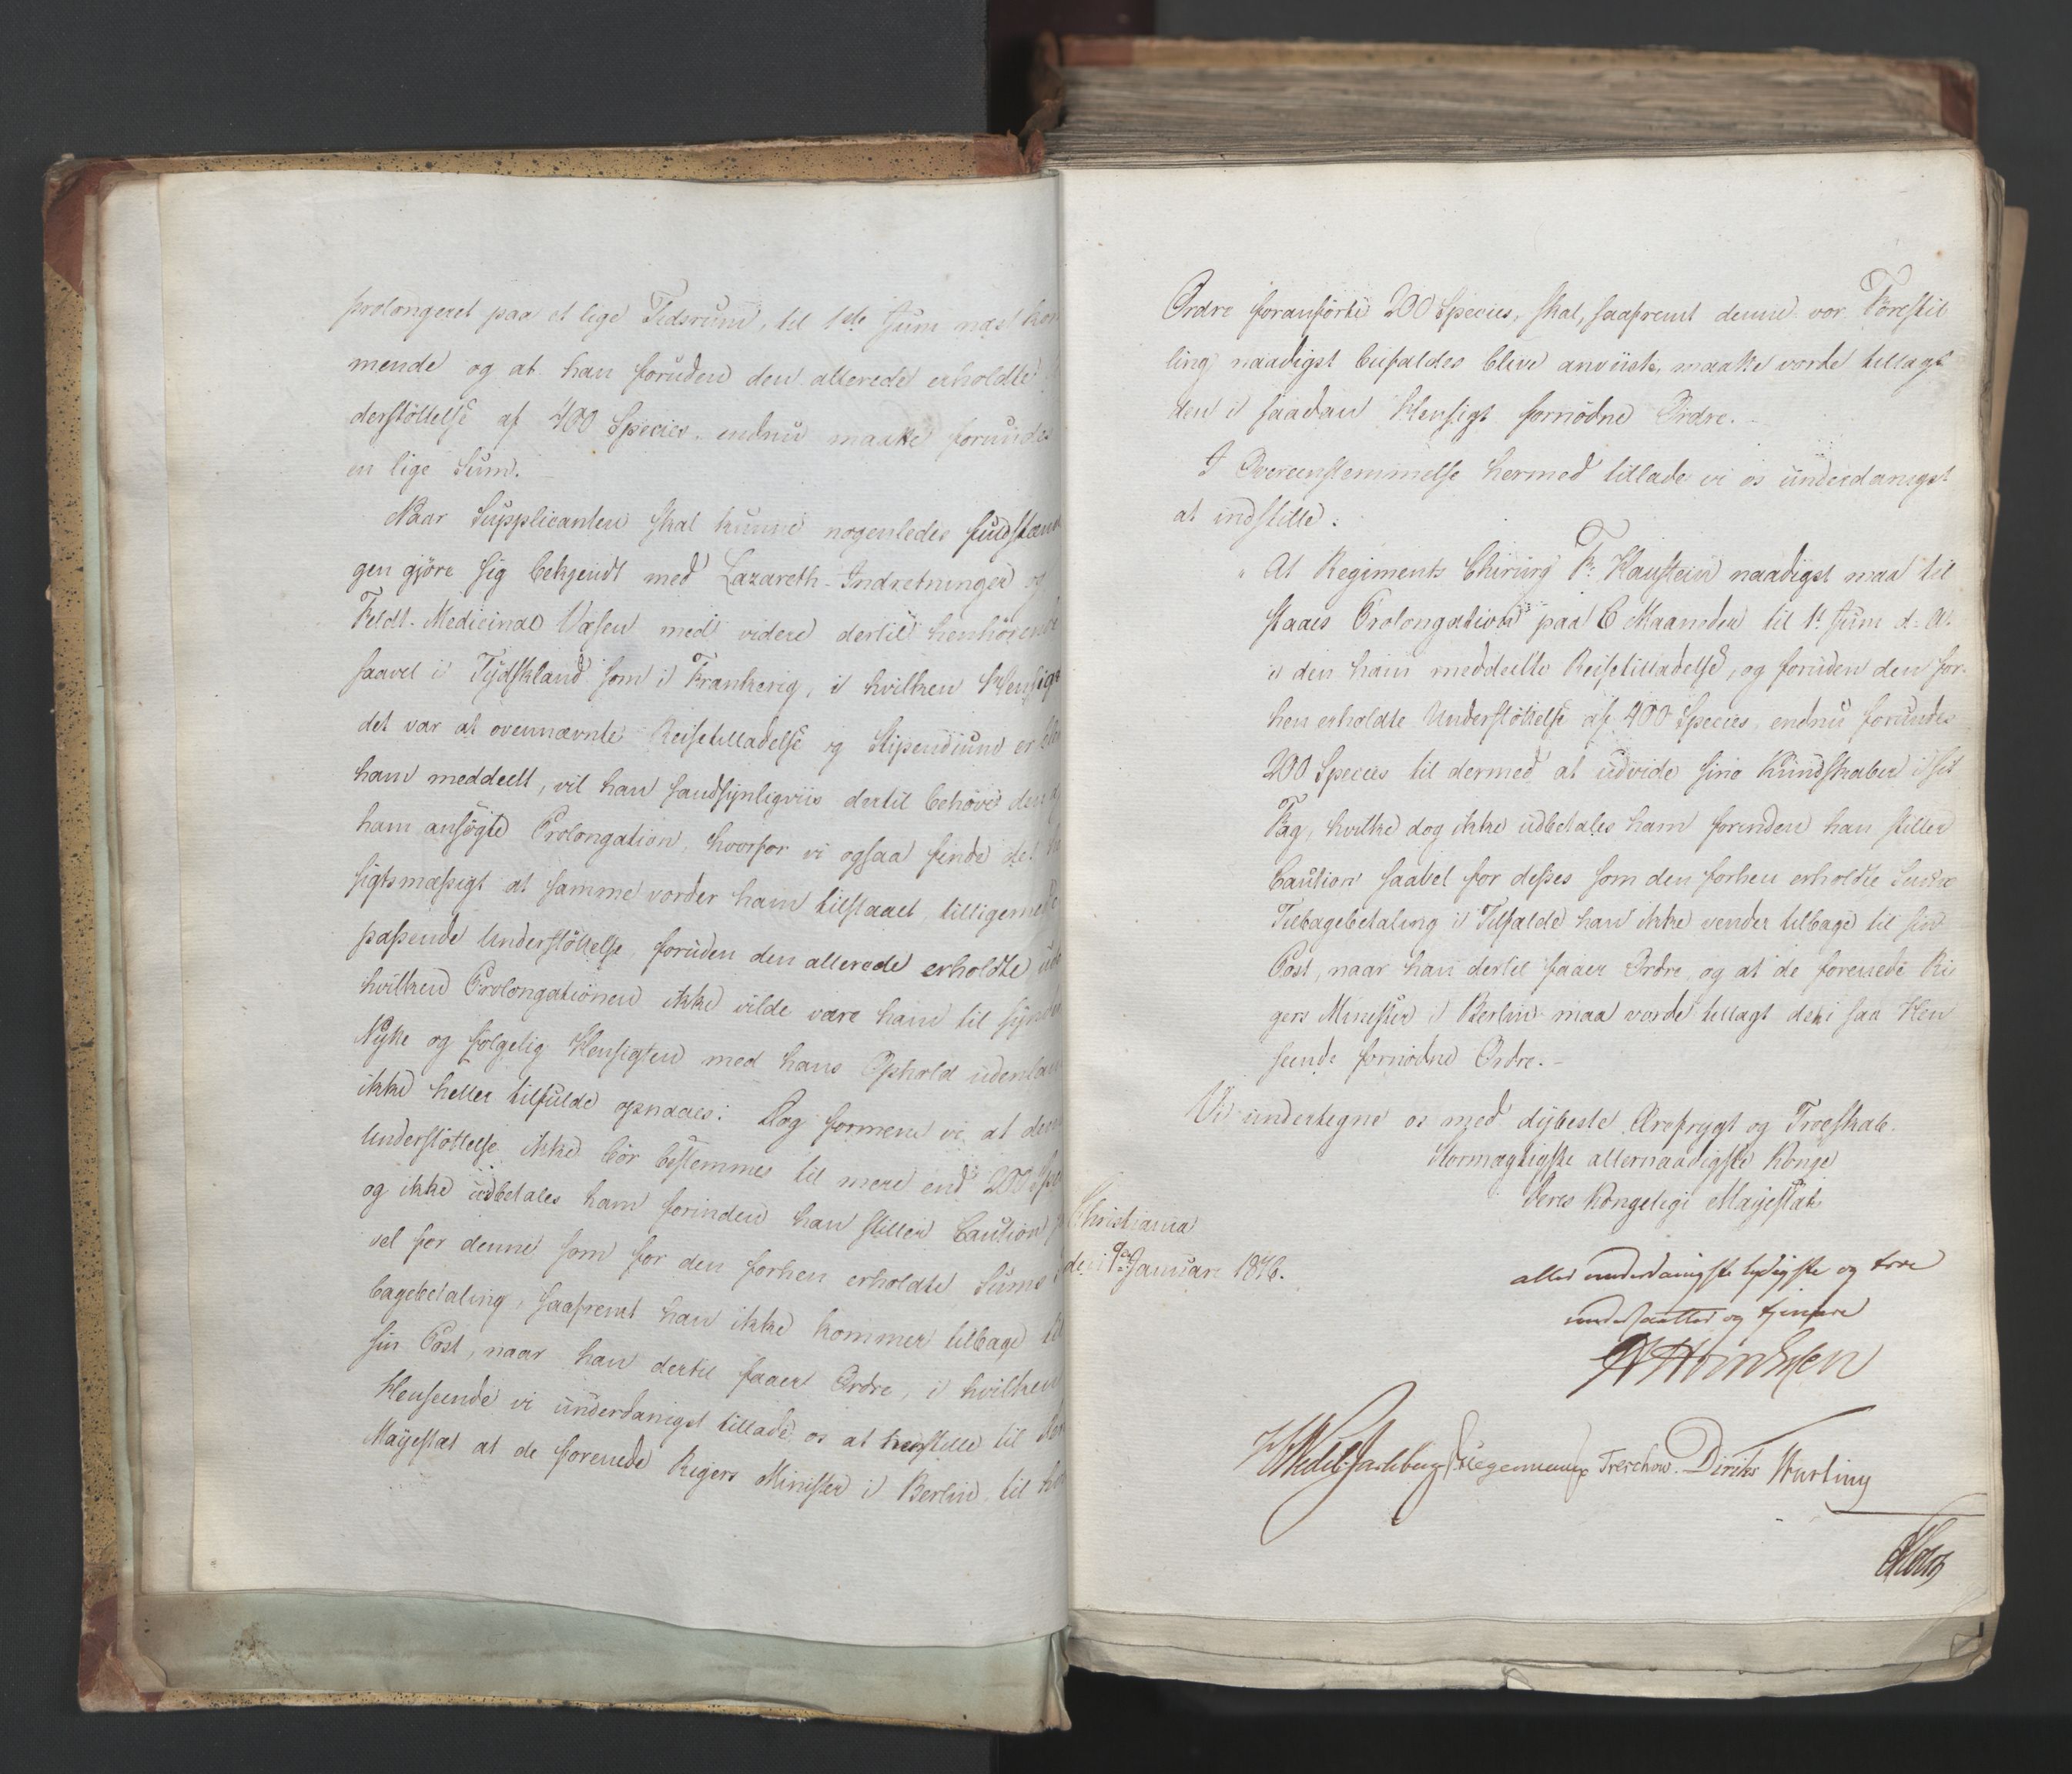 prolongeret paa et lige Tidsrum, til 1ste Juni næst kom
mende og at han foruden den allerede erholdte
derstöttelse af 400 Species endnu maatte forundes
en lige Sum.
Naar Supplicanten skal kunne nogenledes fuldstæn
gen gjöre sig bekjendt med Lazareth-Indretninger og
Feldt-Medicinal Væsen med videre dertil henhörende
saavel i Tydskland som i Frankerig, i hvilken Hensigt
det var at ovennævnte Reisetilladelse og Stipendium er
ham meddeelt, vil han sandsynligviis dertil behöve den
ham ansögte Prolongation, hvorfor vi ogsaa finde det
sigtsmæssigt at samme vorder ham tilstaaet tilligemed
passende Understöttelse, foruden den allerede erholdte
hvilken Prolongationen ikke vilde være ham til synder
Nytte og fölgelig Hensigten med hans Ophold udenlan
ikke heller tilfulde opnaaes: Dog formene vi at denne
Understöttelse ikke bör bestemmes til mere end 200 Spe
og ikke udbetales ham forinden han stiller Caution
vel for denne som for den forhen erholdte Sums
bagebetaling, saafremt han ikke kommer tilbage til
sin Post, naar han dertil faaer Ordre, i hvilken
Henseende vi underdanigst tillade os at henstille til
Mayestæt at de forenede Rigers Minister i Berlin til
Ordre foranförte 200 Species, skal, saafremt denne vor Förestil
ling naadigst bifaldes blive anviiste, maatte vorde tillagt
den i saadan Hensigt fornödne Ordre.
I Overeenstemmelse hermed tillade vi os underdanigst
at indstille:
" At Regiments Chirurg Fr: Haustein naadigst maa til
staaes Prolongation paa 6 Maaneder til 1st Juni d: A:
i den ham meddeelte Reisetilladelse, og foruden den for-
hen erholdte Understöttelse af 400 Species endnu forundes
200 Species til dermed at udvide sine Kundskaber i sit
Fag, hvilke dog ikke udbetales ham forinden han stiller
Caution saavel for disses som den forhen erholdte Sums
Tilbagebetaling i Tilfælde han ikke vender tilbage til sin
Post, naar han dertil faaer Ordre, og at de forenede Ri
gers Minister i Berlin maa vorde tillagt den i saa Hen
seende fornödne Ordre. -
Vi undertegne os med dybeste Ærefrygt og Troeskab.
Stormægtigste allernaadigste Konge
Deres Kongelige Mayestæts
Christiania
den 9de Januari 1816.
allerunderdanigste lydigste og troe
undersaatter og tjenere
HWedel-Jarlsberg Hegermann Treschow. Diriks Wurting